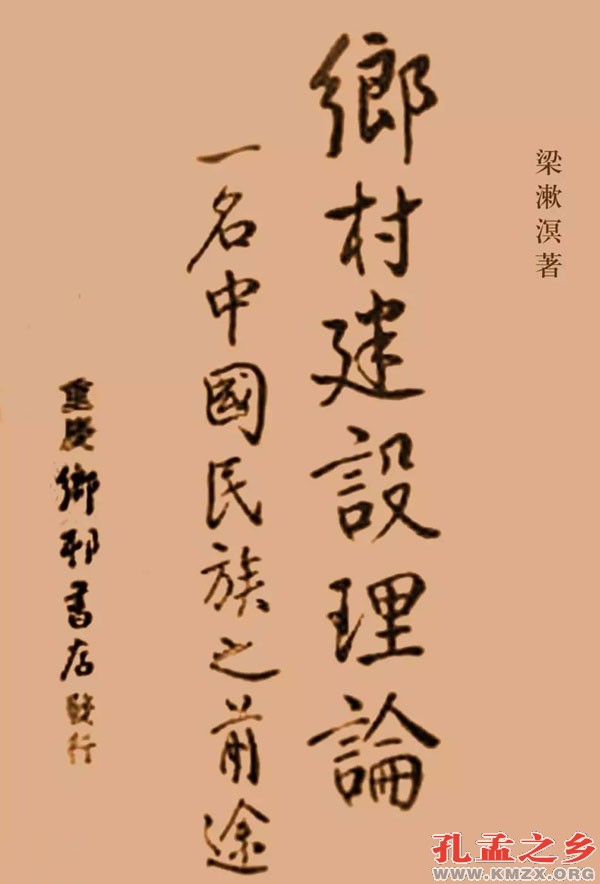 梁漱溟著
鄉村建設理論
一名中國民族之前途
重慶鄉邨書店發行
孔孟之乡
WWW.KMZX.ORG